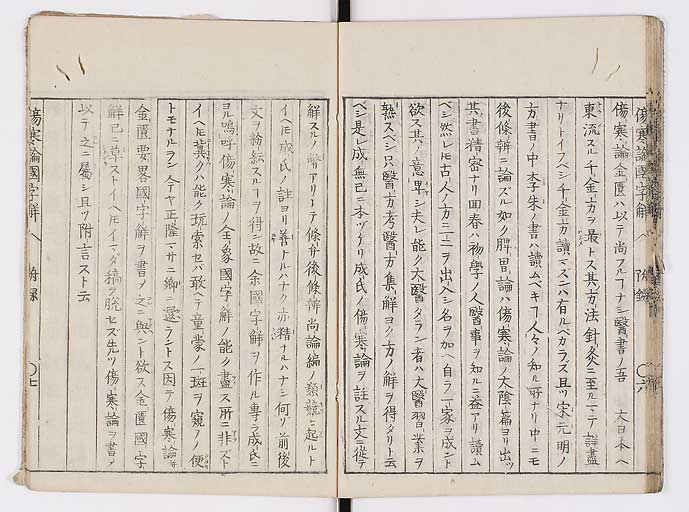 傷寒論國字解 附錄 〇六
傷寒論金匱ハ以テ尚フルコナシ醫書ノ吾 大日本ヘ
東流スル千金方ヲ最トス其方法針灸ニ至ルマテ詳盡
ナリトイフベシ千金方讀マズンハ有ルベカラズ且ツ宋元明ノ
方書ノ中李朱ノ書ハ讀ムベキフ人々ノ知ル所ナリ中ニモ
後條辨ニ論ズル如ク脾胃論ハ傷寒論ノ太陰篇ヨリ出ッ
其書精密ナリ回春ハ初學ノ人醫事ヲ知ルニ益アリ讀ム
ベシ然レ𪜈古人ノ方三二ヲ出入シ名ヲ加ヘ自ラ一家ヲ成ント
欲ス其ノ意卑シ夫レ能ク大醫タラン者ハ大醫習業ヲ
熟スベシ只醫方考醫方集解ヨク方ノ解ヲ得タリト云
ベシ是レ成無已ニ本ヅケリ成氏ノ傷寒論ヲ註スル文ニ從テ
解スルノ弊アリトテ條辨後條辨尚論編ノ類競ヒ起ルト
イヘ𪜈成氏ノ註ヨリ善ナルハナク亦精ナルハナシ何ゾ前後
文ヲ紛紜スルフヲ得ン故ニ余國字解ヲ作ル專ラ成氏ニ
ヨル嗚呼傷寒論ノ全象國字解ノ能ク盡ス所ニ非ズト
イヘ𪜈冀クハ能ク玩索セバ敢ヘテ童蒙ノ一斑ヲ窺フノ便
トモナルラン今テヤ正隆マサニ鄉ニ還ラントス因テ傷寒論
金匱要畧國字解ヲ書メ之ニ與ント欲ス金匱國字
解已ニ草ストイヘ𪜈イマダ稿ヲ脱セズ先ツ傷寒論ヲ書メ
以テ之ニ屬シ且ツ附言スト云
傷寒論國字解 附錄 〇七